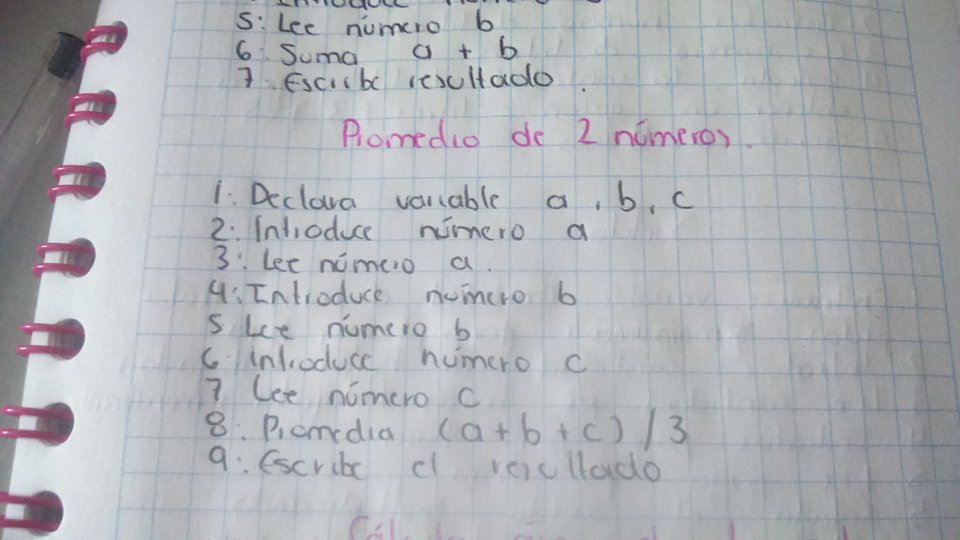 5: Lee número b
6: Suma a + b
7: Escribe resultado.
Promedio de 2 números.
1: Declara variable a, b, c
2: Introduce número a
3: Lee número a.
4: Introduce número b
5 Lee número b
6 Introduce número c
7 Lee número c
8: Promedia (a+b+c) / 3
9: Escribe el resultado